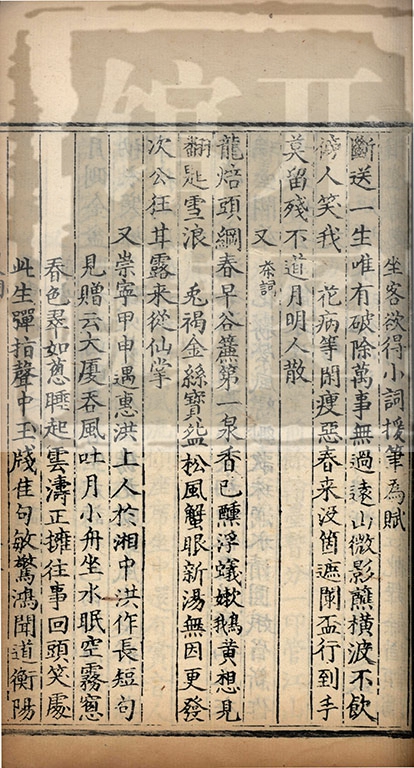 坐客欲得小詞援筆為賦
斷送一生唯有破除萬事無過遠山微影蘸橫波不飲
傍人笑我 花病等閒瘦惡春来沒箇遮闌盃行到手
莫留殘不道月明人散
又 茶詞
龍焙頭綱春早谷簾第一泉香已醺浮蟻嫩鵝黃想見
翻匙雪浪 兎禍金絲寶盌松風蟹眼新湯無因更發
次公狂甘露來從仙掌
又 崇寧甲申遇惠洪上人於湘中洪作長短句
見贈云大厦吞風吐月小舟坐水眠空霧窓
春色翠如蔥睡起雲濤正擁往事回頭笑處
此生彈指聲中玉牋佳句敏驚鴻聞道衡陽